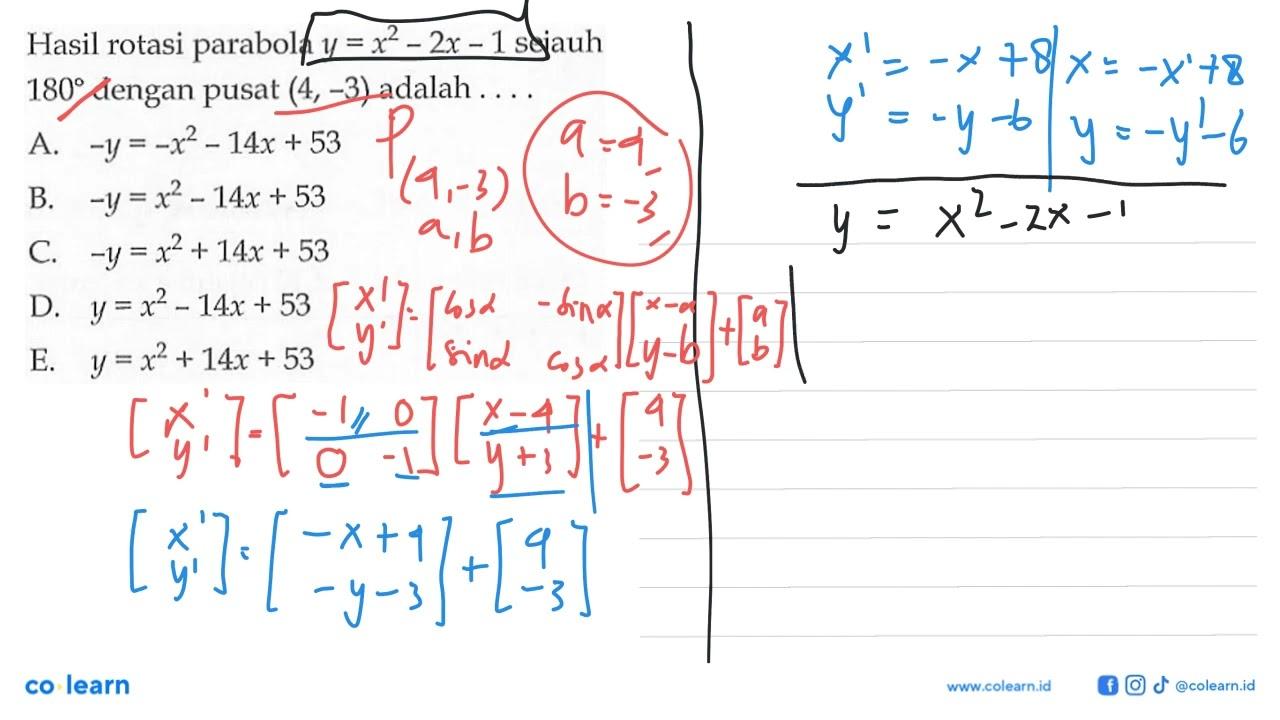 Hasil rotasi parabola y = x² – 2x – 1 sejauh
180° dengan pusat (4, –3) adalah . . . .
A. –y = –x² – 14x + 53
B. –y = x² – 14x + 53
C. –y = x² + 14x + 53
D. y = x² – 14x + 53
E. y = x² + 14x + 53
P(4,-3)
a,b
a=4
b=-3
[x' y'] = [cosα -sinα sinα cosα] [x-a y-b] + [a b]
[x' y'] = [-1 0 0 -1] [x-4 y+3] + [4 -3]
[x' y'] = [-x+4 -y-3] + [4 -3]
x' = -x +8 x = -x'+8
y' = -y -6 y = -y'-6
y = x² -2x -1
co·learn
www.colearn.id @colearn.id